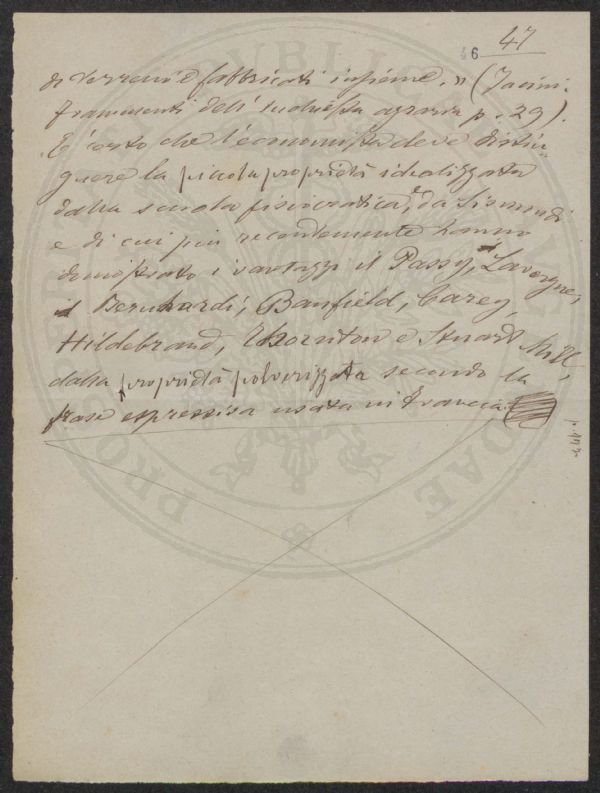 46 47
di terreni e fabbricati insieme." (Jacini
frammenti dell'inchiesta agraria p. 29).
E' certo che l'economista deve distin-
guere la piccola proprietà idealizzata
dalla scuola fisiocratica, da Sismondi
e di cui più recentemente hanno
dimostrato i vantaggi il Passy, Lavergne,
Bernhardi, Banfield, Carey,
Hildebrand, Thornton e Stuart Mill,
dalla proprietà polverizzata secondo la
frase espressiva usata in Francia.